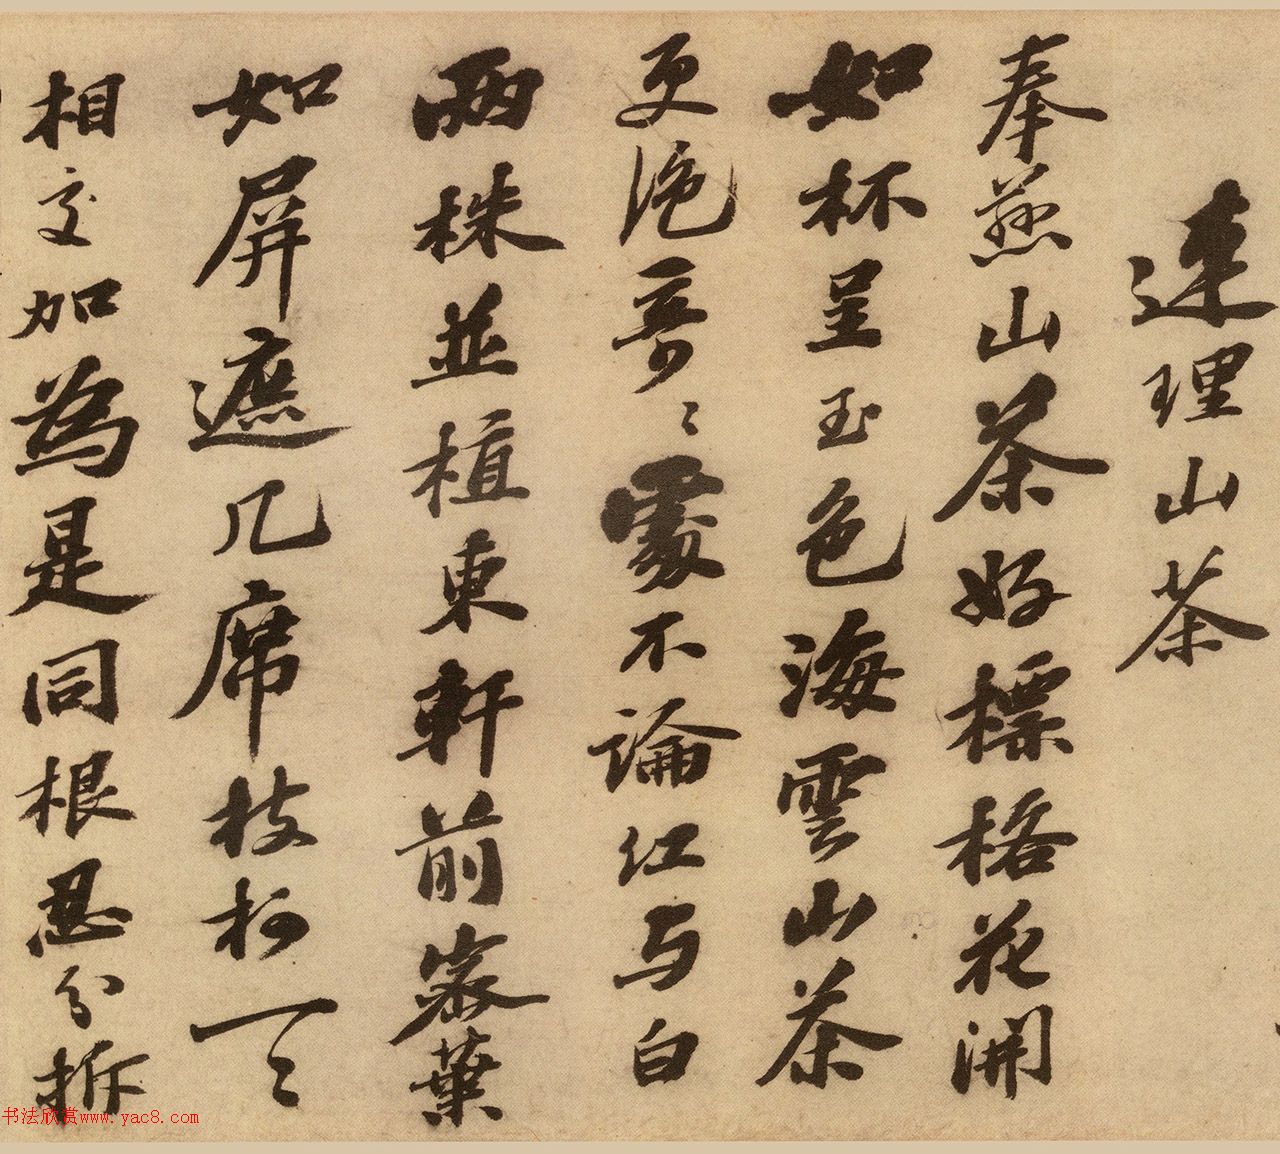 連理山茶
奉慈山茶好標格花開
如杯呈玉色海雲山茶
更絶奇〻處不論紅与白
兩株並植東軒前密葉
如屏遮几席枝柯一〻
相交加為是同根忍分拆
书法欣赏www.yac8.com